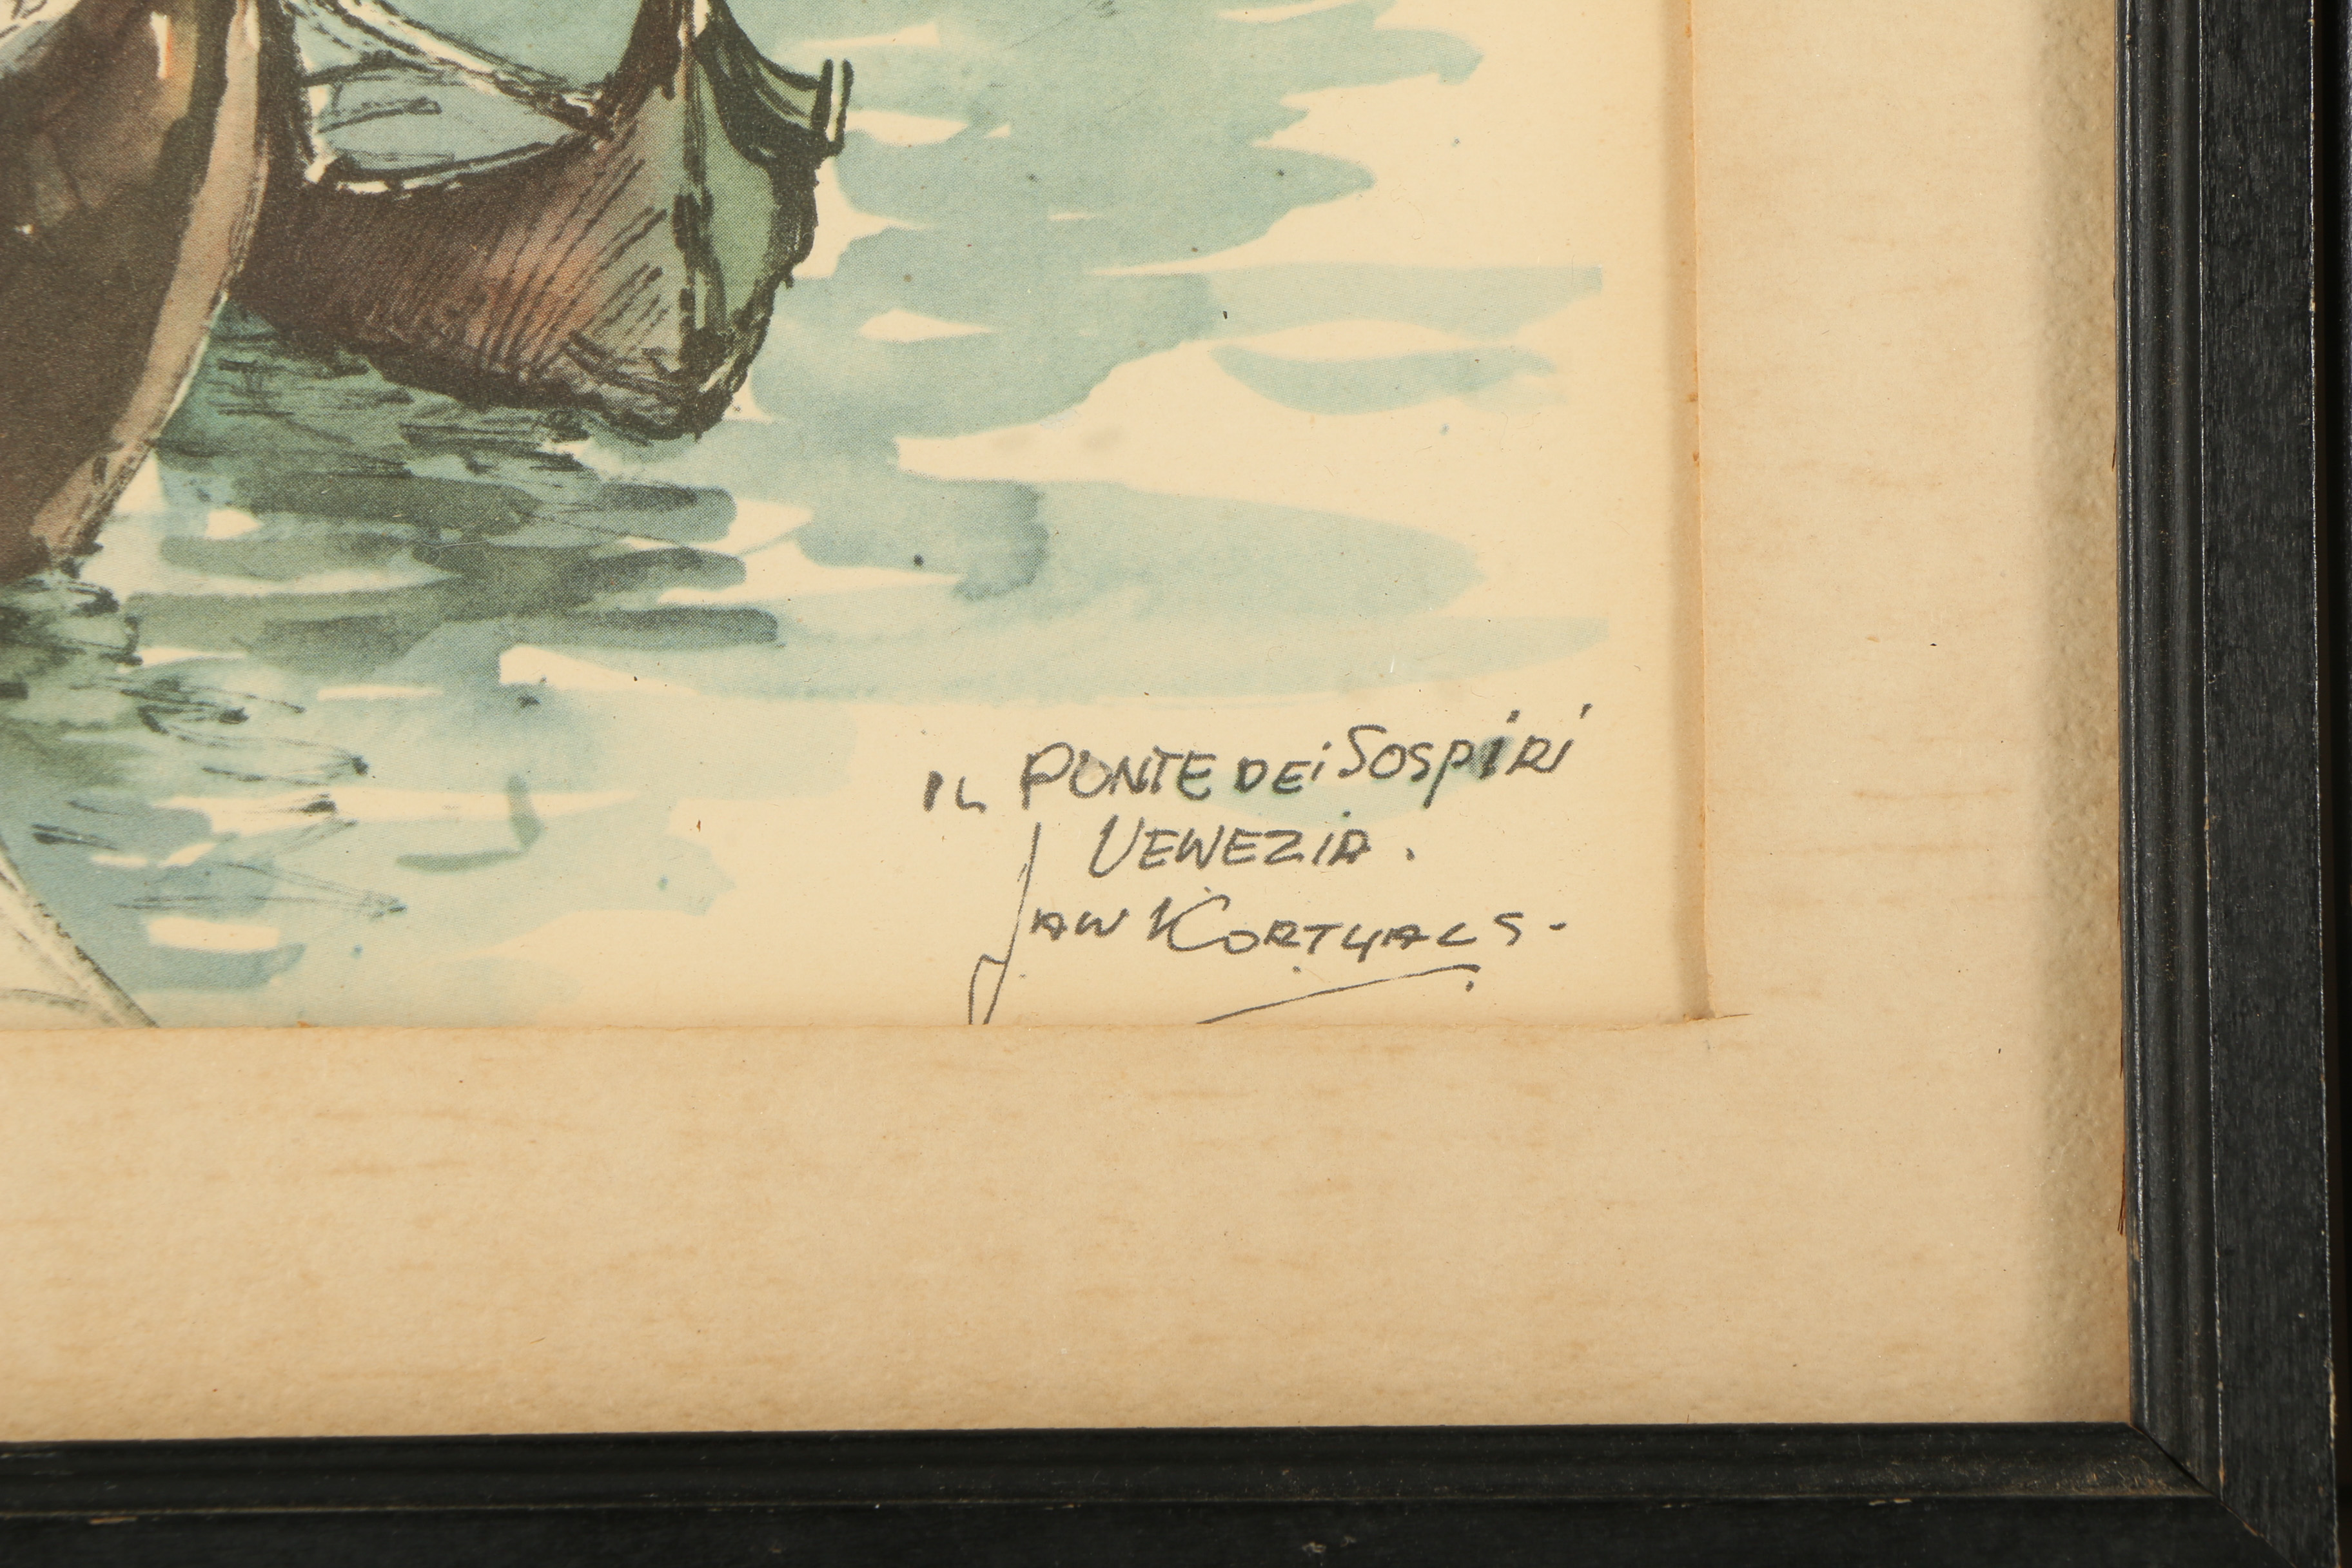 IL PONTE DEi SOSPiRi
VENEZiA.
JAN KORTHALS-